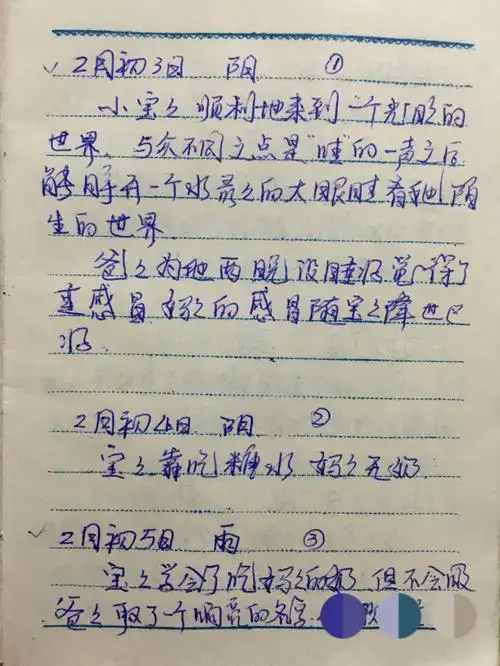 2月初3日 阴 ①
小宝之顺利地来到一个光彩的
世界。与众不同之点是"哇"的一声之后
能睁开一个水灵之的大眼睛看她陌
生的世界
爸之为她两晚没睡好觉得了
重感冒 妈之的感冒随宝之降世已
好
2月初4日 阴 ②
宝之靠吃糖水 妈之无奶
2月初5日 雨 ③
宝之学会了吃妈之的奶 但不会吸
爸之取了一个响亮的名字